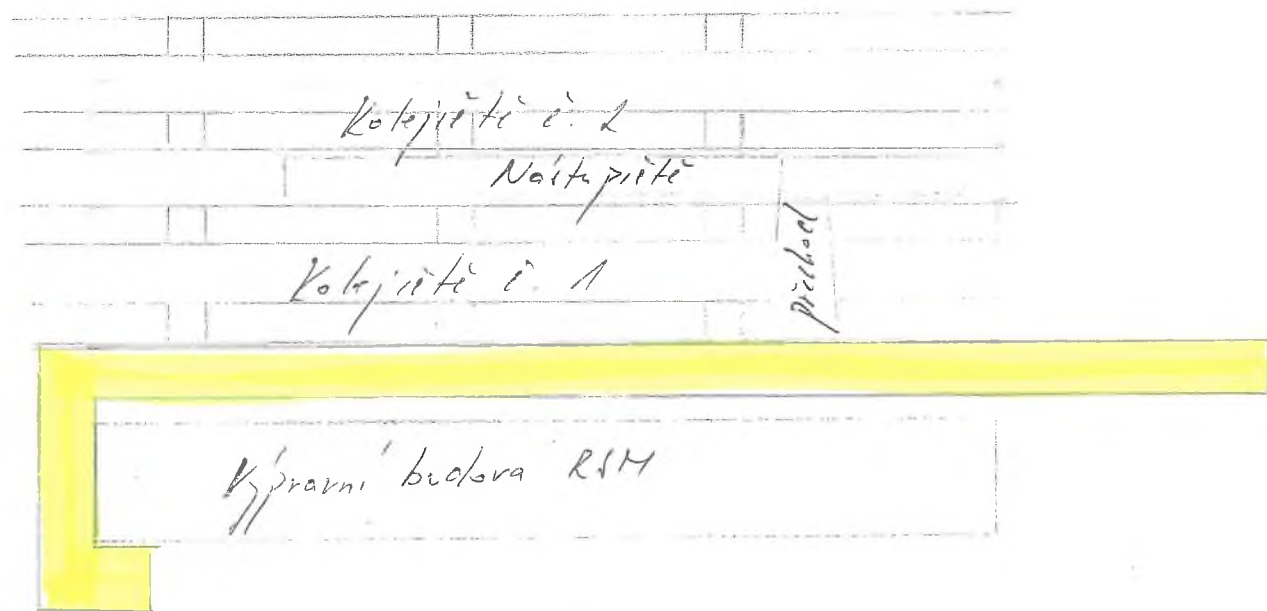 Kolejiště č. 2
Nástupiště
přechod
Kolejiště č. 1
Výpravní budova RSM